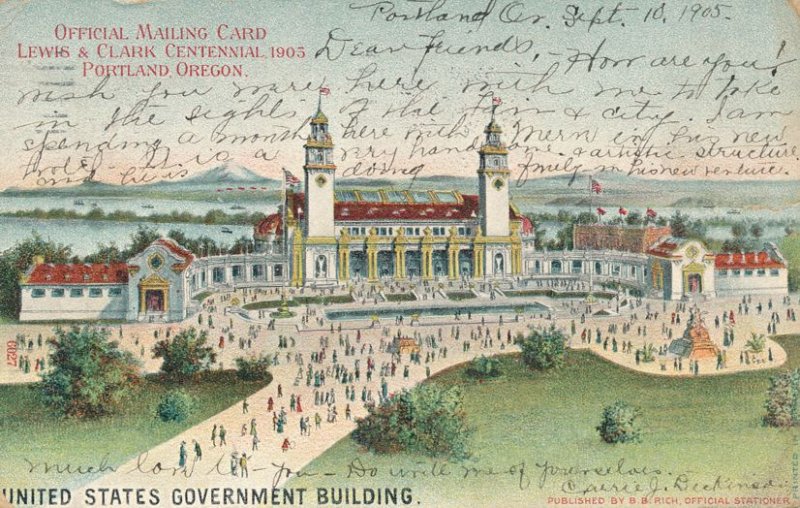 Portland Or. Sept. 10, 1905.
OFFICIAL MAILING CARD
LEWIS & CLARK CENTENNIAL 1905
PORTLAND, OREGON.
Dear Friends, - How are you!
wish you were here with me to take
in the sights of the fair & city. I am
spending a month here with Mern in his new
hotel. It is a very handsome & artistic structure
and he is doing finely in his new venture.
6027
much love to you - Do write me of yourselves.
Carrie J. Dickinson
UNITED STATES GOVERNMENT BUILDING.
PUBLISHED BY B. B. RICH, OFFICIAL STATIONER
PRINTED IN